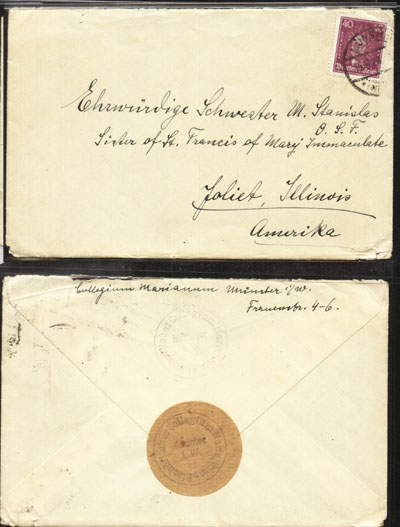 40
Ehrwürdige Schwester M. Stanislas
O. S. F.
Sister of St. Francis of Mary Immaculate
Joliet, Illinois
Amerika
Collegium Marianum Münster i/W.
Frauenstr. 4-6.
Collegium
Münster
i. W.